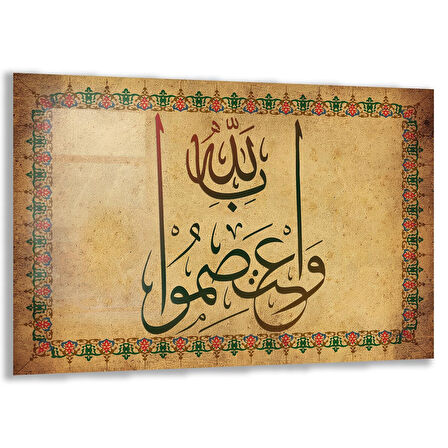 واعتصموا
بالله